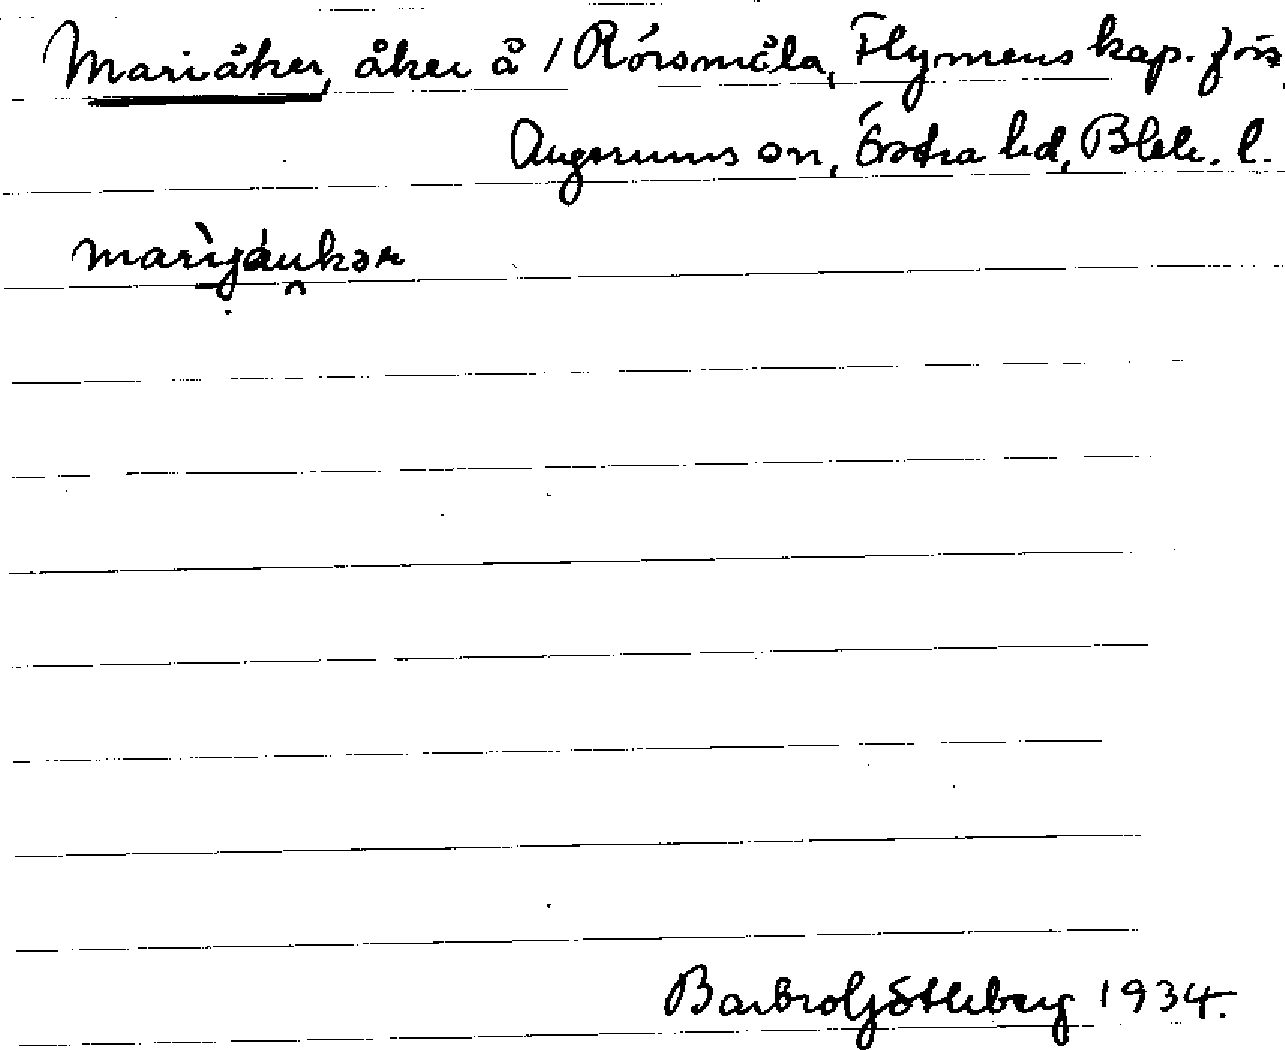 Mariåker, åker å / Rörsmåla, Flymens kap. förs
Augerums sn, Östra hd, Blek. l.
marijáukər
Barbro Götleberg 1934.